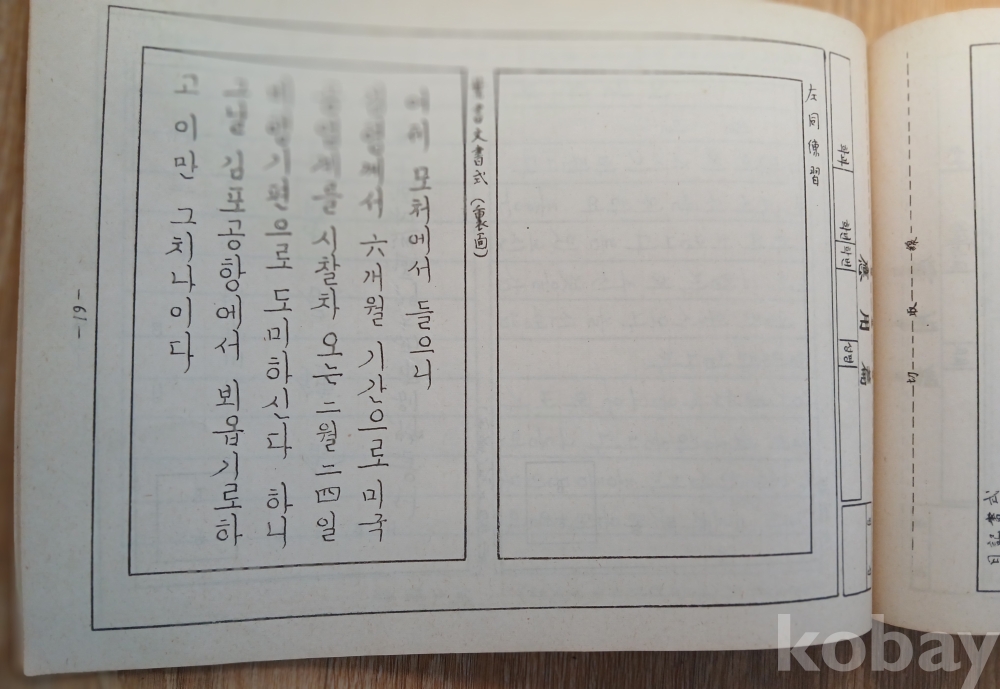 切取線
日記書式
應用篇
학과 학년 학번 성명
左同練習
文書式 (裏面)
모처에서 들으니
六개월 기간으로 미국
시찰차 오는 二월 二四일
도미하신다 하니
김포공항에서 뵈옵기로하
고 이만 그치나이다
-19-
kobay